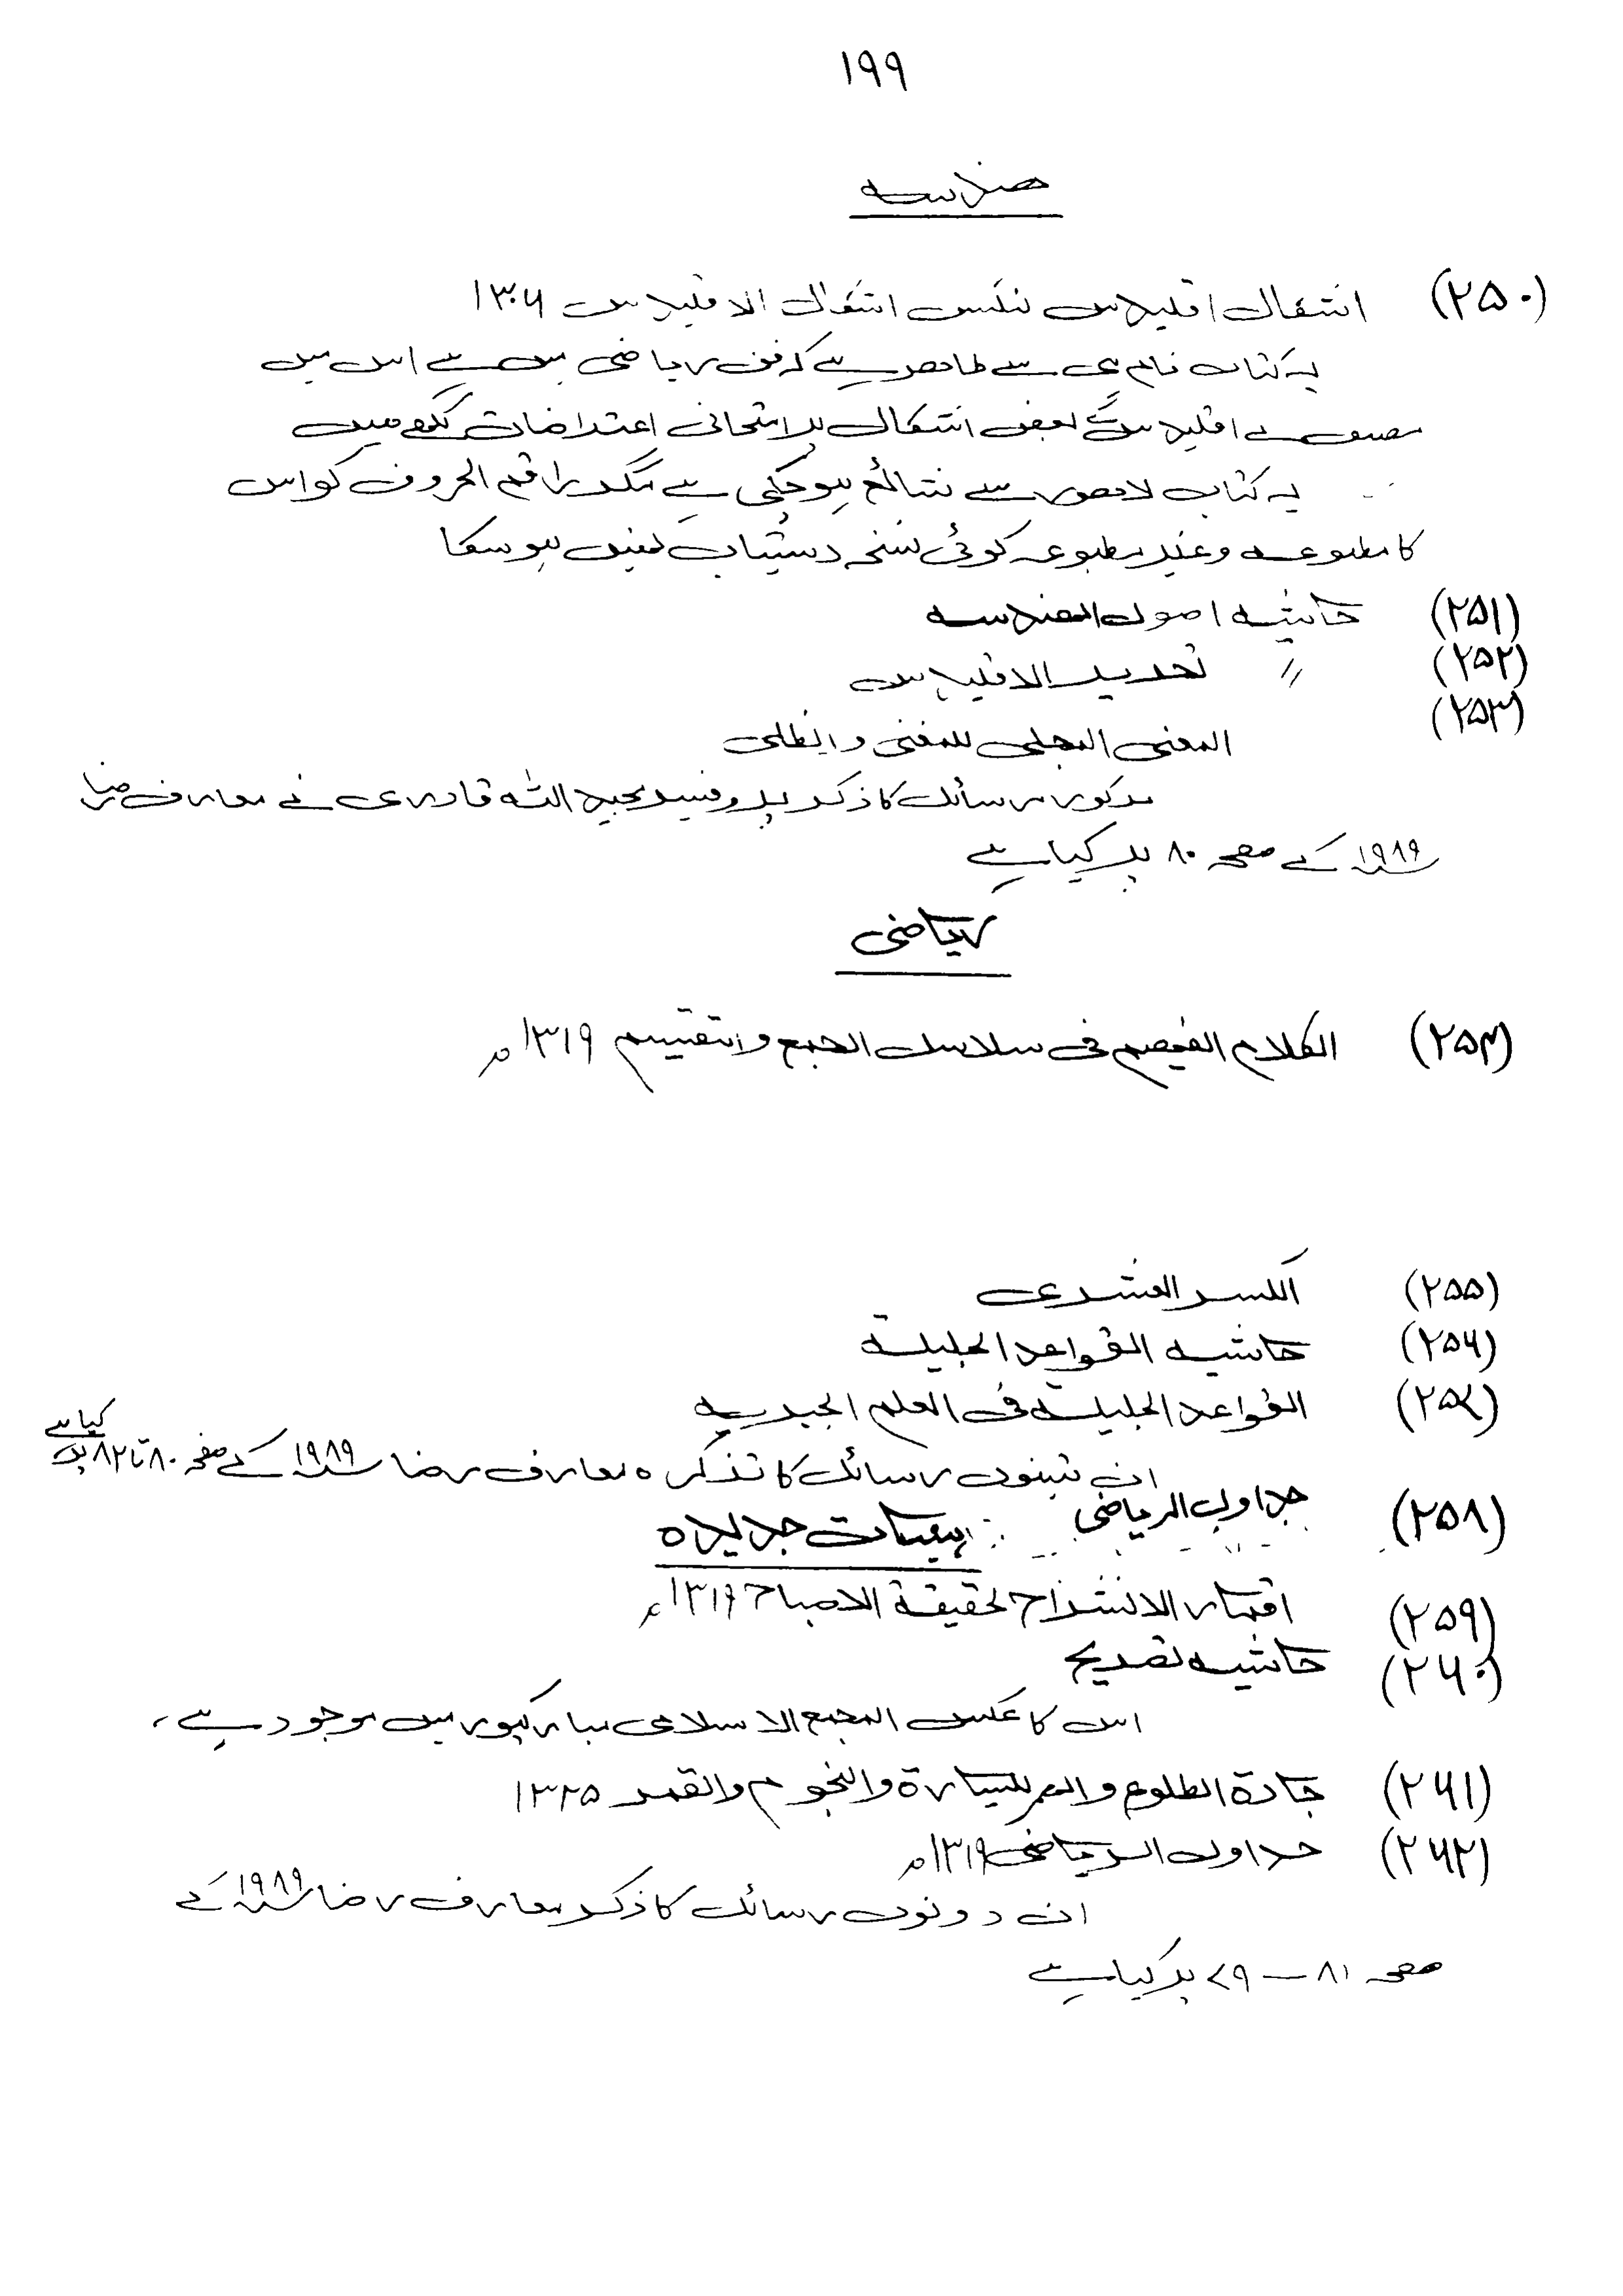 ۱۹۹
ھندسہ
(۲۵۰) اشکال اقلیدس لنکس اشکال الاقلیدس ۱۳۰۶
یہ کتاب نام ہی سے ظاھر ہے کہ فن ریاضی میں ہے اس میں
مصنف نے اقلیدس کے بعض اشکال پر امتحانی اعتراضات لکھے ھیں
یہ کتاب لاھور سے شائع ہوچکی ہے مگر راقم الحروف کو اس
کا مطبوعہ وغیر مطبوعہ کوئی نسخہ دستیاب نہیں ہوسکا
(۲۵۱) حاشیہ اصول الھندسہ
(۲۵۲) 〃 تحریر الاقلیدس
(۲۵۳) المعنی المجلی للمغنی والظلی
مذکور رسائل کا ذکر پروفیسر مجید اللہ قادری نے معارف رضا
۱۹۸۹ کے صفحہ ۸۰ پر کیا ہے
ریاضی
(۲۵۴) الکلام الفہیم فی سلاسل الجمع والتقسیم ۱۳۱۹ھ
(۲۵۵) الکسر العشری
(۲۵۶) حاشیہ القواعد الجلیلۃ
(۲۵۷) القواعد الجلیلۃ فی العلم الجبریہ
ان تینوں رسائل کا تذکرہ معارف رضا ۱۹۸۹ کے صفحہ ۸۰ تا ۸۲ پر کیا ہے
(۲۵۸) جداول الریاضی
ہیئات جدیدہ
(۲۵۹) اقمار الانشراح لحقیقۃ الاصباح ۱۳۱۹ھ
(۲۶۰) حاشیہ تصریح
اس کا عکس المجمع الاسلامی مبارکپور میں موجود ہے،
(۲۶۱) جادۃ الطلوع والممر للسیارۃ والنجوم والقمر ۱۳۲۵
(۲۶۲) جداول الریاضی ۱۳۱۹ھ
ان دونوں رسائل کا ذکر معارف رضا ۱۹۸۹ کے
صفحہ ۸۱ — ۷۹ پر کیا ہے